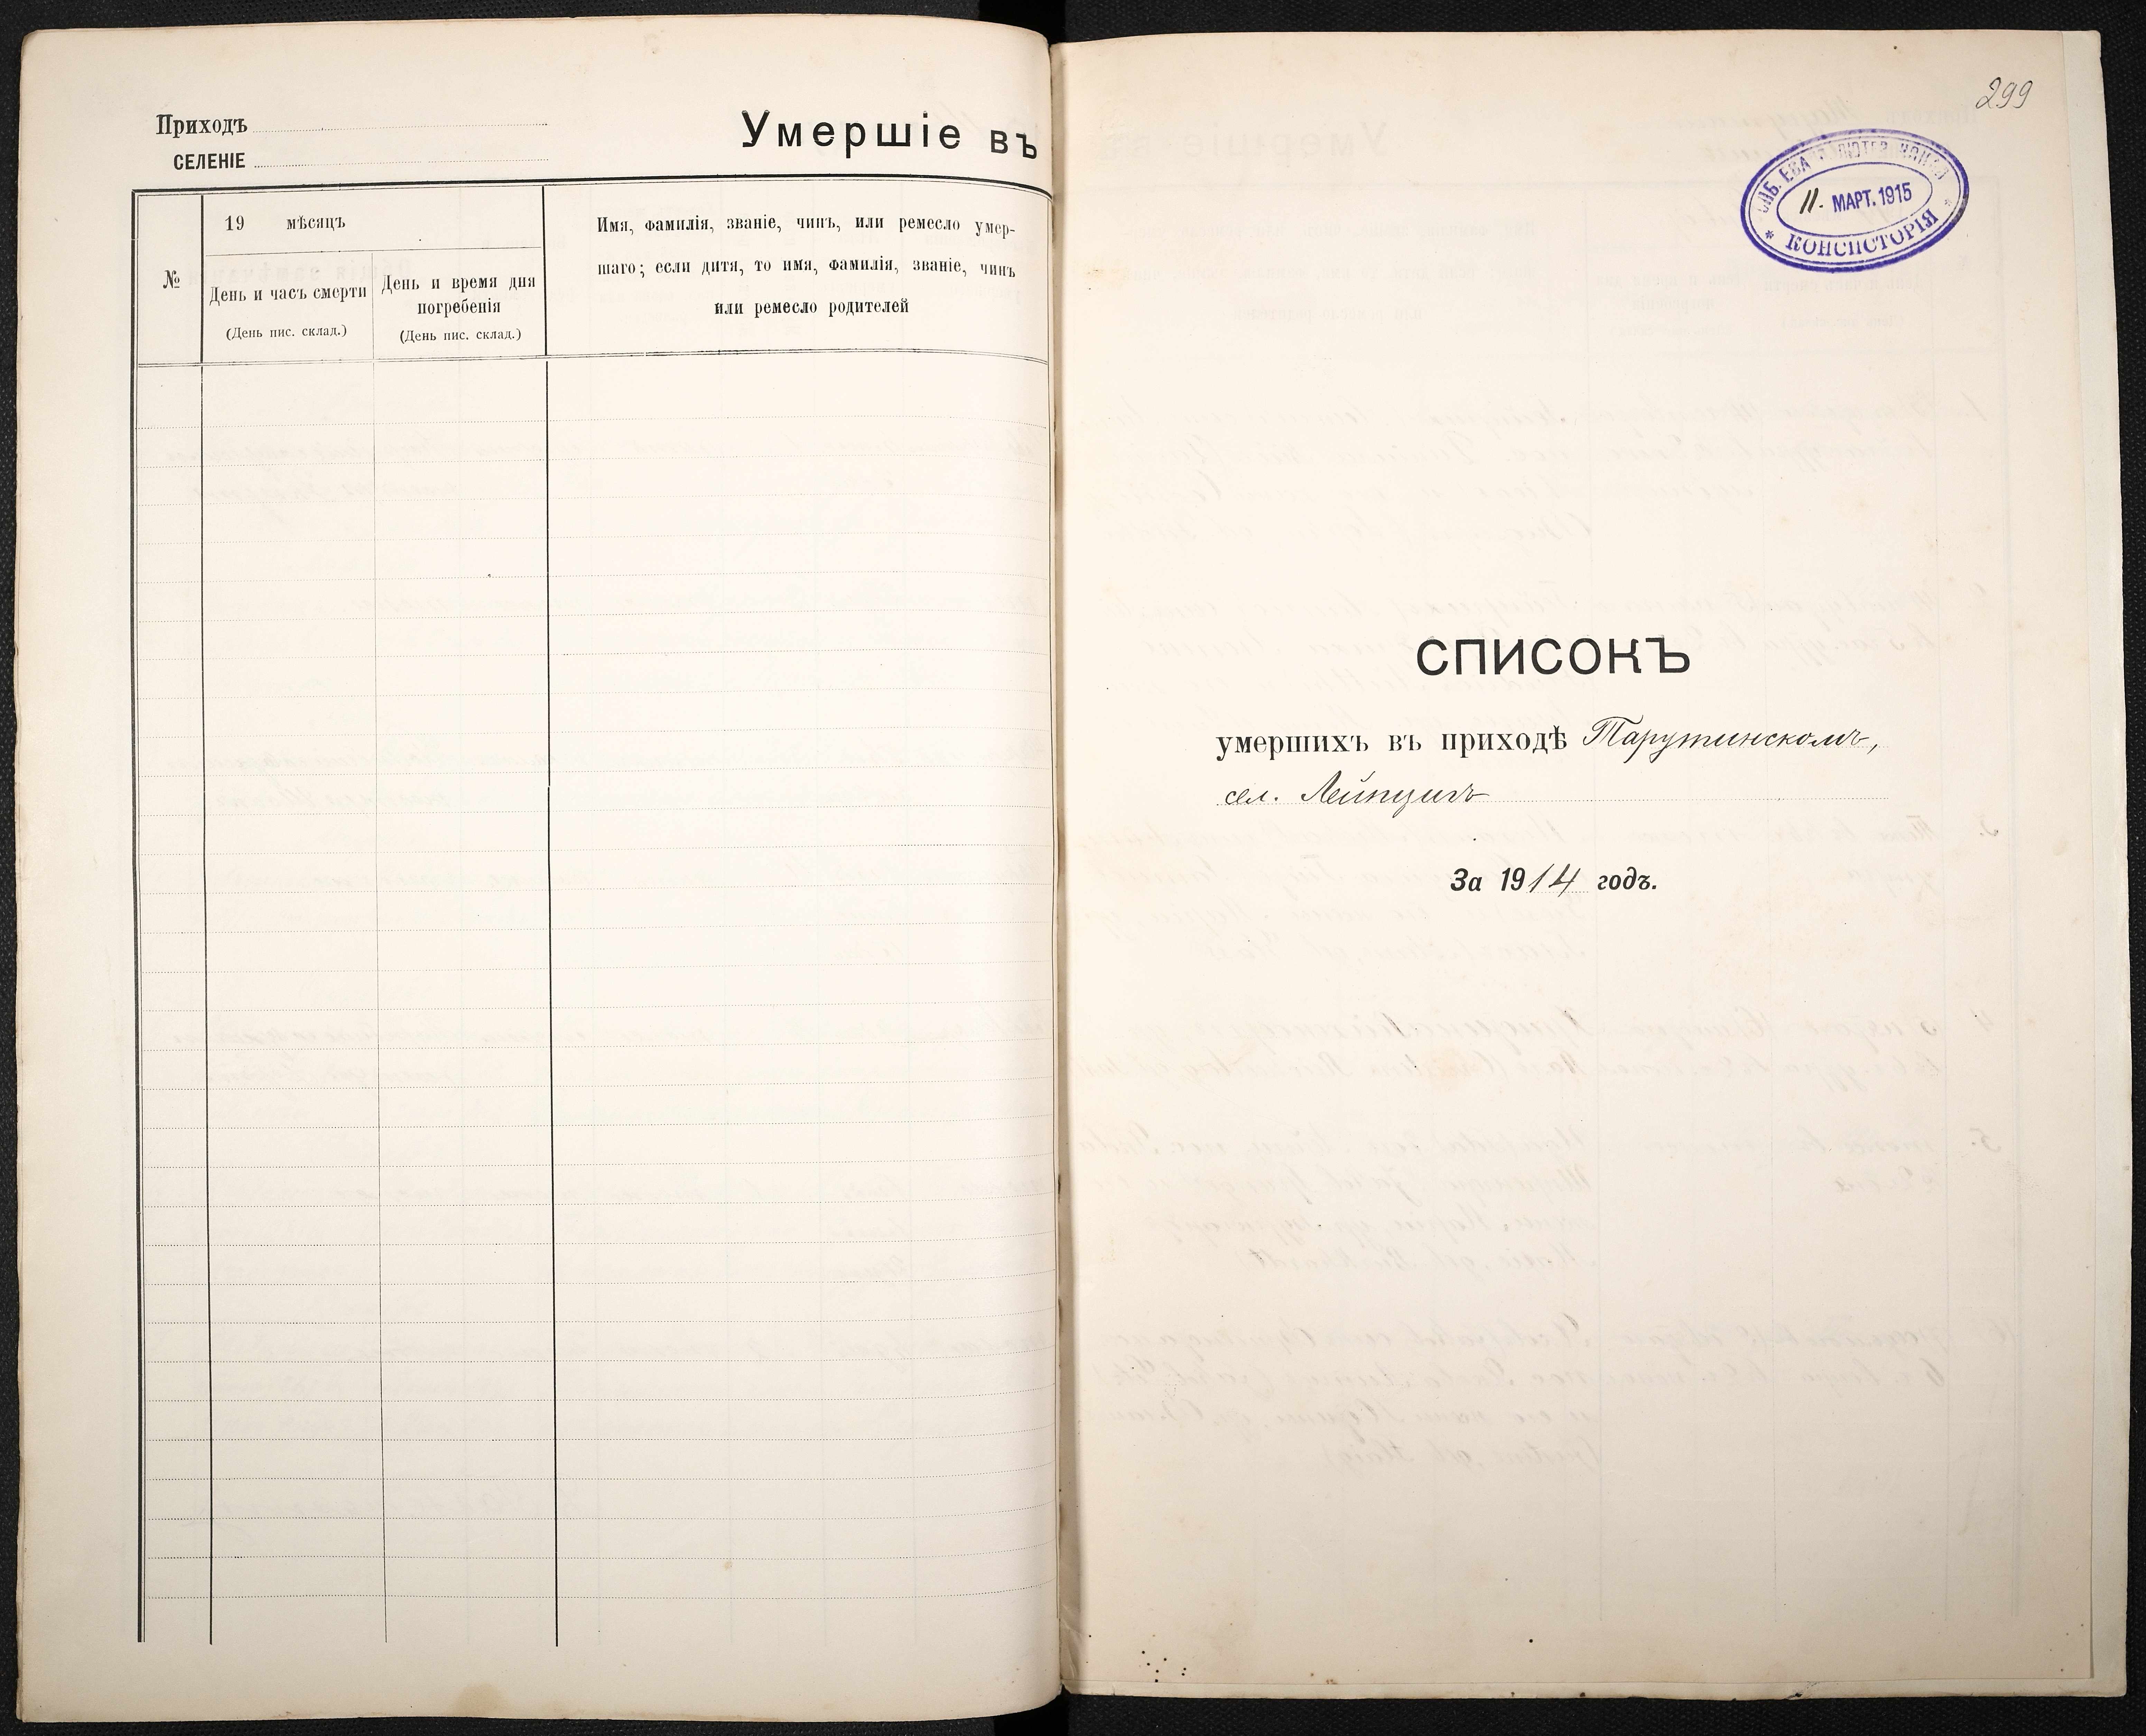 Приходъ
СЕЛЕНІЕ
Умершіе въ
№
19 мѣсяцъ
День и часъ смерти
(День пис. склад.)
День и время дня
погребенія
(День пис. склад.)
Имя, фамилія, званіе, чинъ, или ремесло умер-
шаго; если дитя, то имя, фамилія, званіе, чинъ
или ремесло родителей
299
СПБ. ЕВА ЛЮТЕР.
11. МАРТ. 1915
* КОНСИСТОРІЯ *
СПИСОКЪ
умершихъ въ приходѣ Тарутинскомъ,
сел. Лейпцигъ
За 1914 годъ.